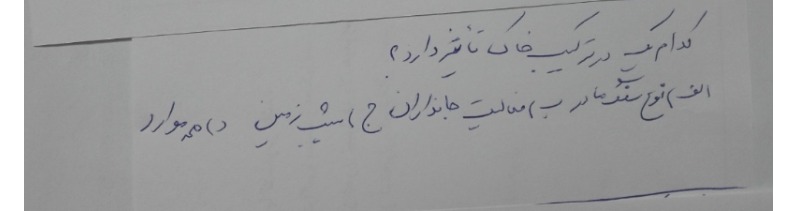 کدام یک در ترکیب خاک تأثیر دارد؟
الف) نوع سنگ مادر ب) فعالیت جانداران ج) شیب زمین د) همه موارد